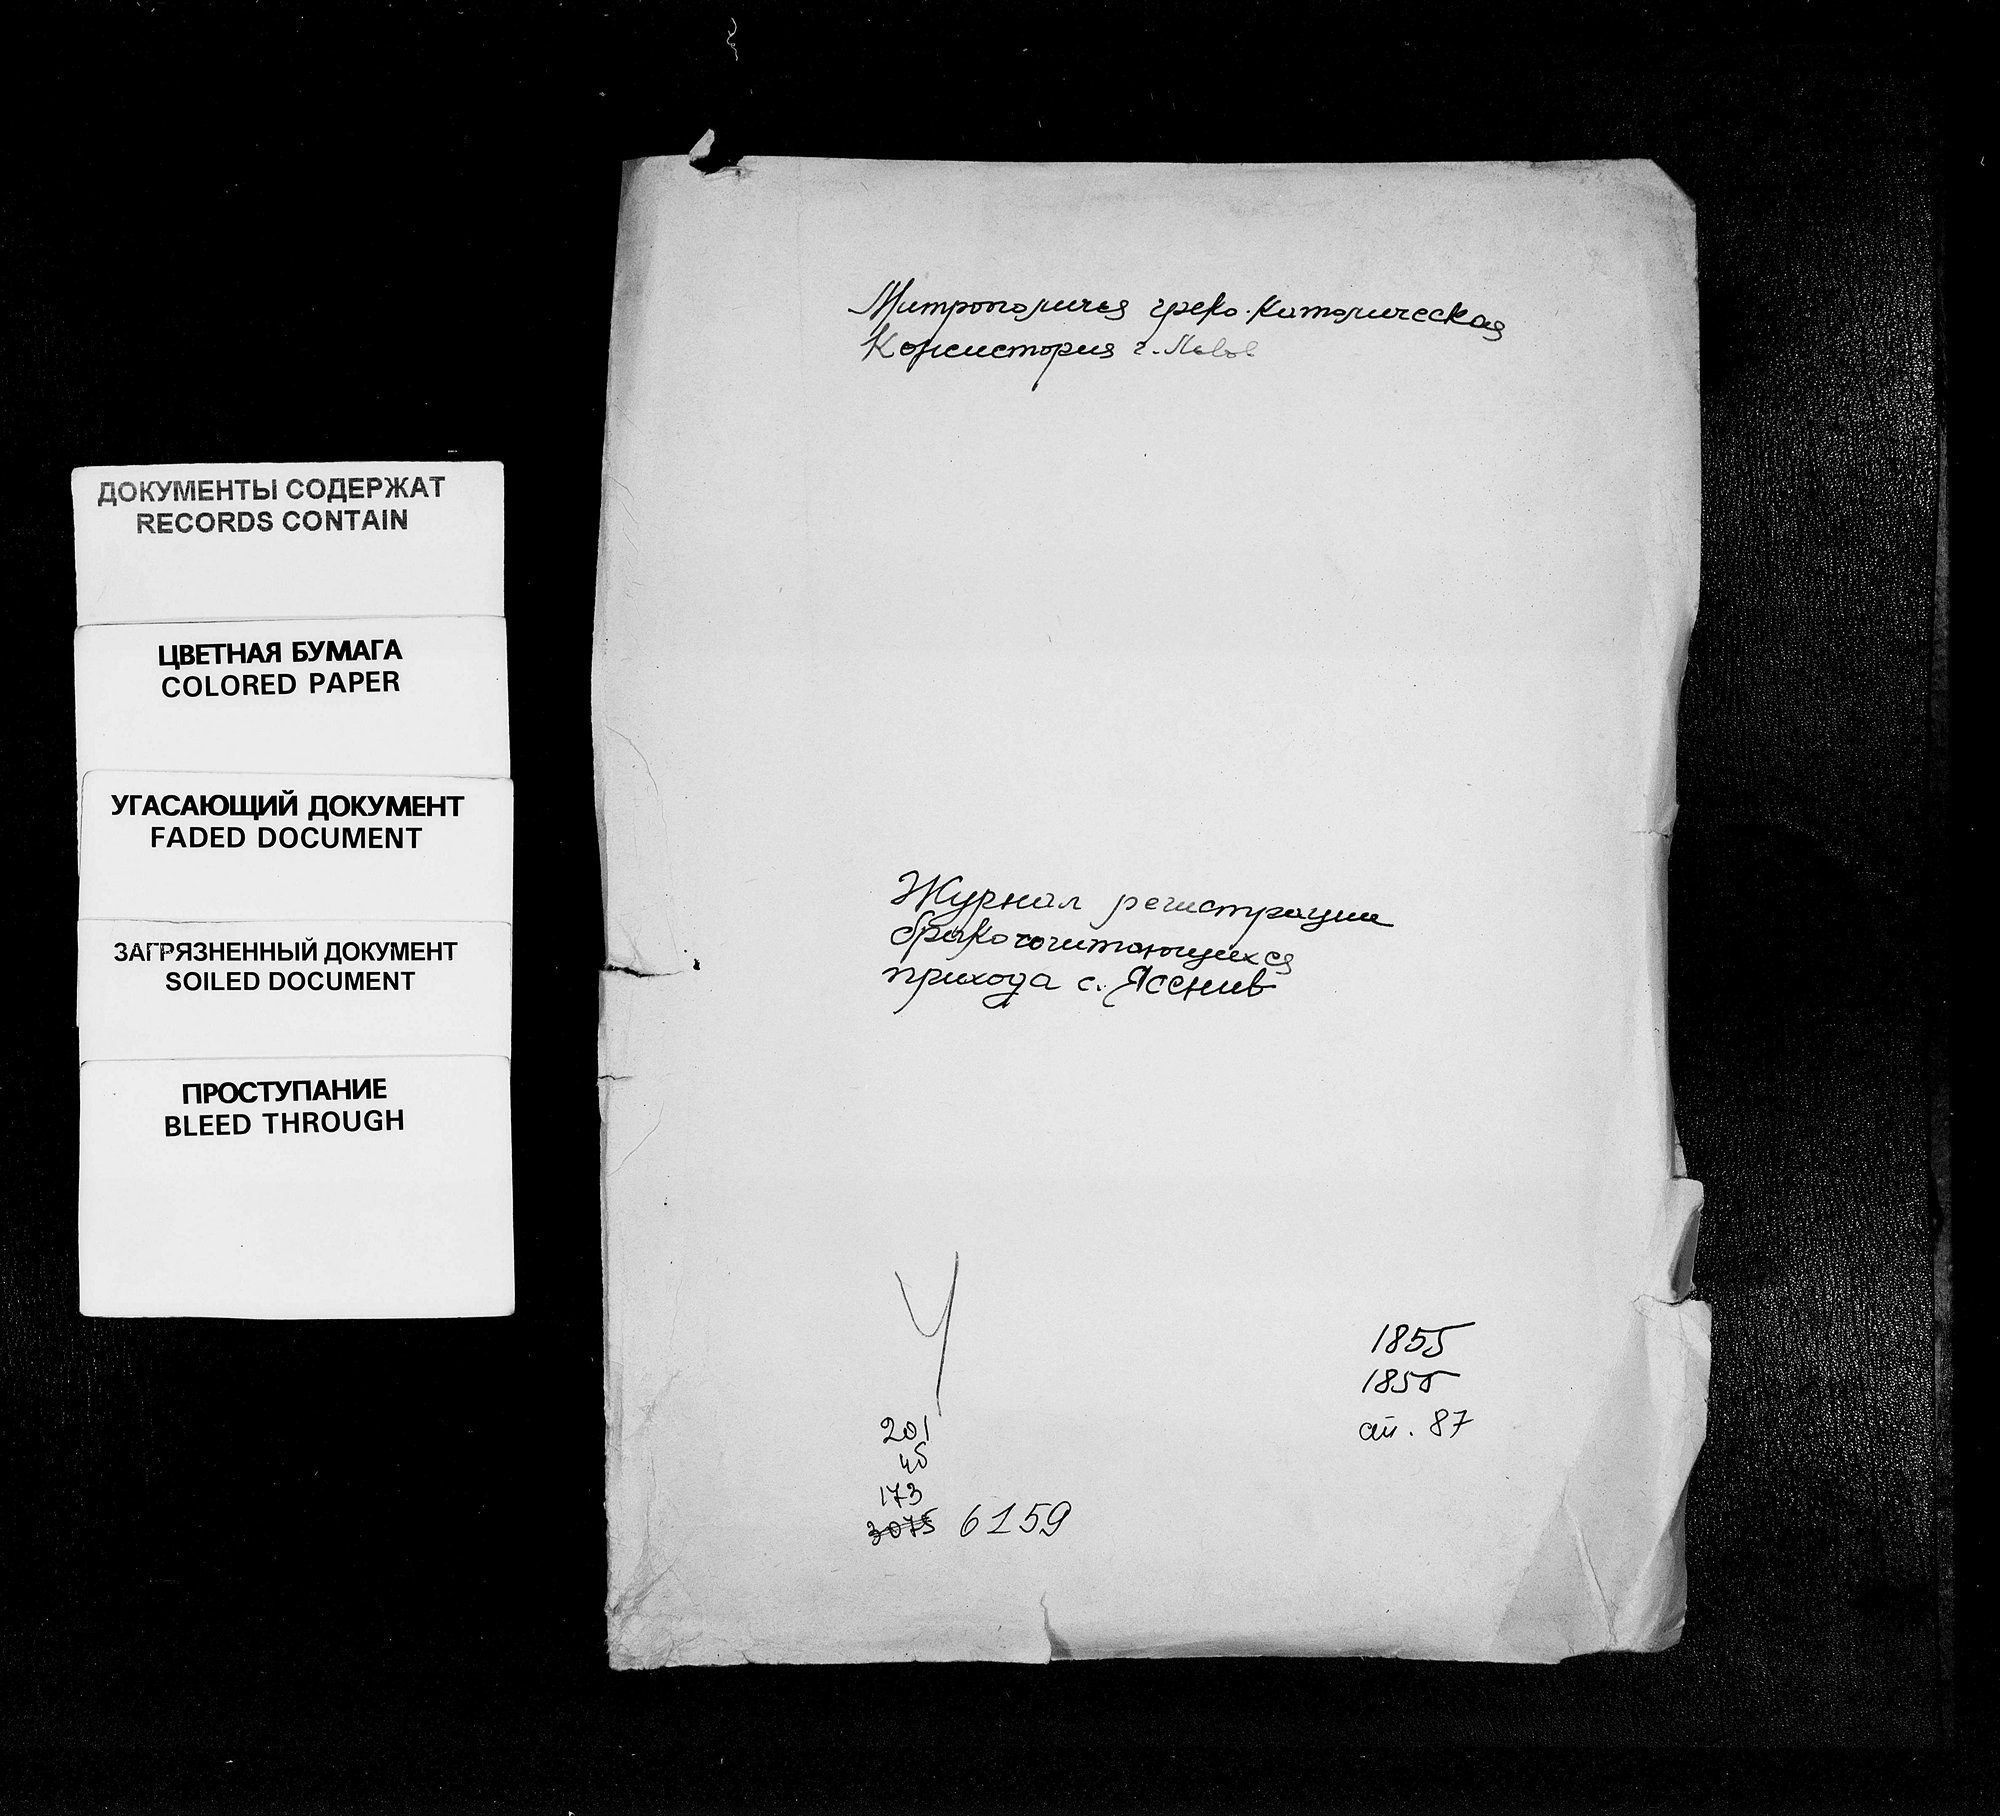 ДОКУМЕНТЫ СОДЕРЖАТ
RECORDS CONTAIN
ЦВЕТНАЯ БУМАГА
COLORED PAPER
УГАСАЮЩИЙ ДОКУМЕНТ
FADED DOCUMENT
ЗАГРЯЗНЕННЫЙ ДОКУМЕНТ
SOILED DOCUMENT
ПРОСТУПАНИЕ
BLEED THROUGH
Митрополичья греко-католическая
Консистория г. Львов
Журнал регистрации
бракосочитающихся
прихода с. Ясенив
У
1855
1855
ап. 87
201
4б
173
3075 6159